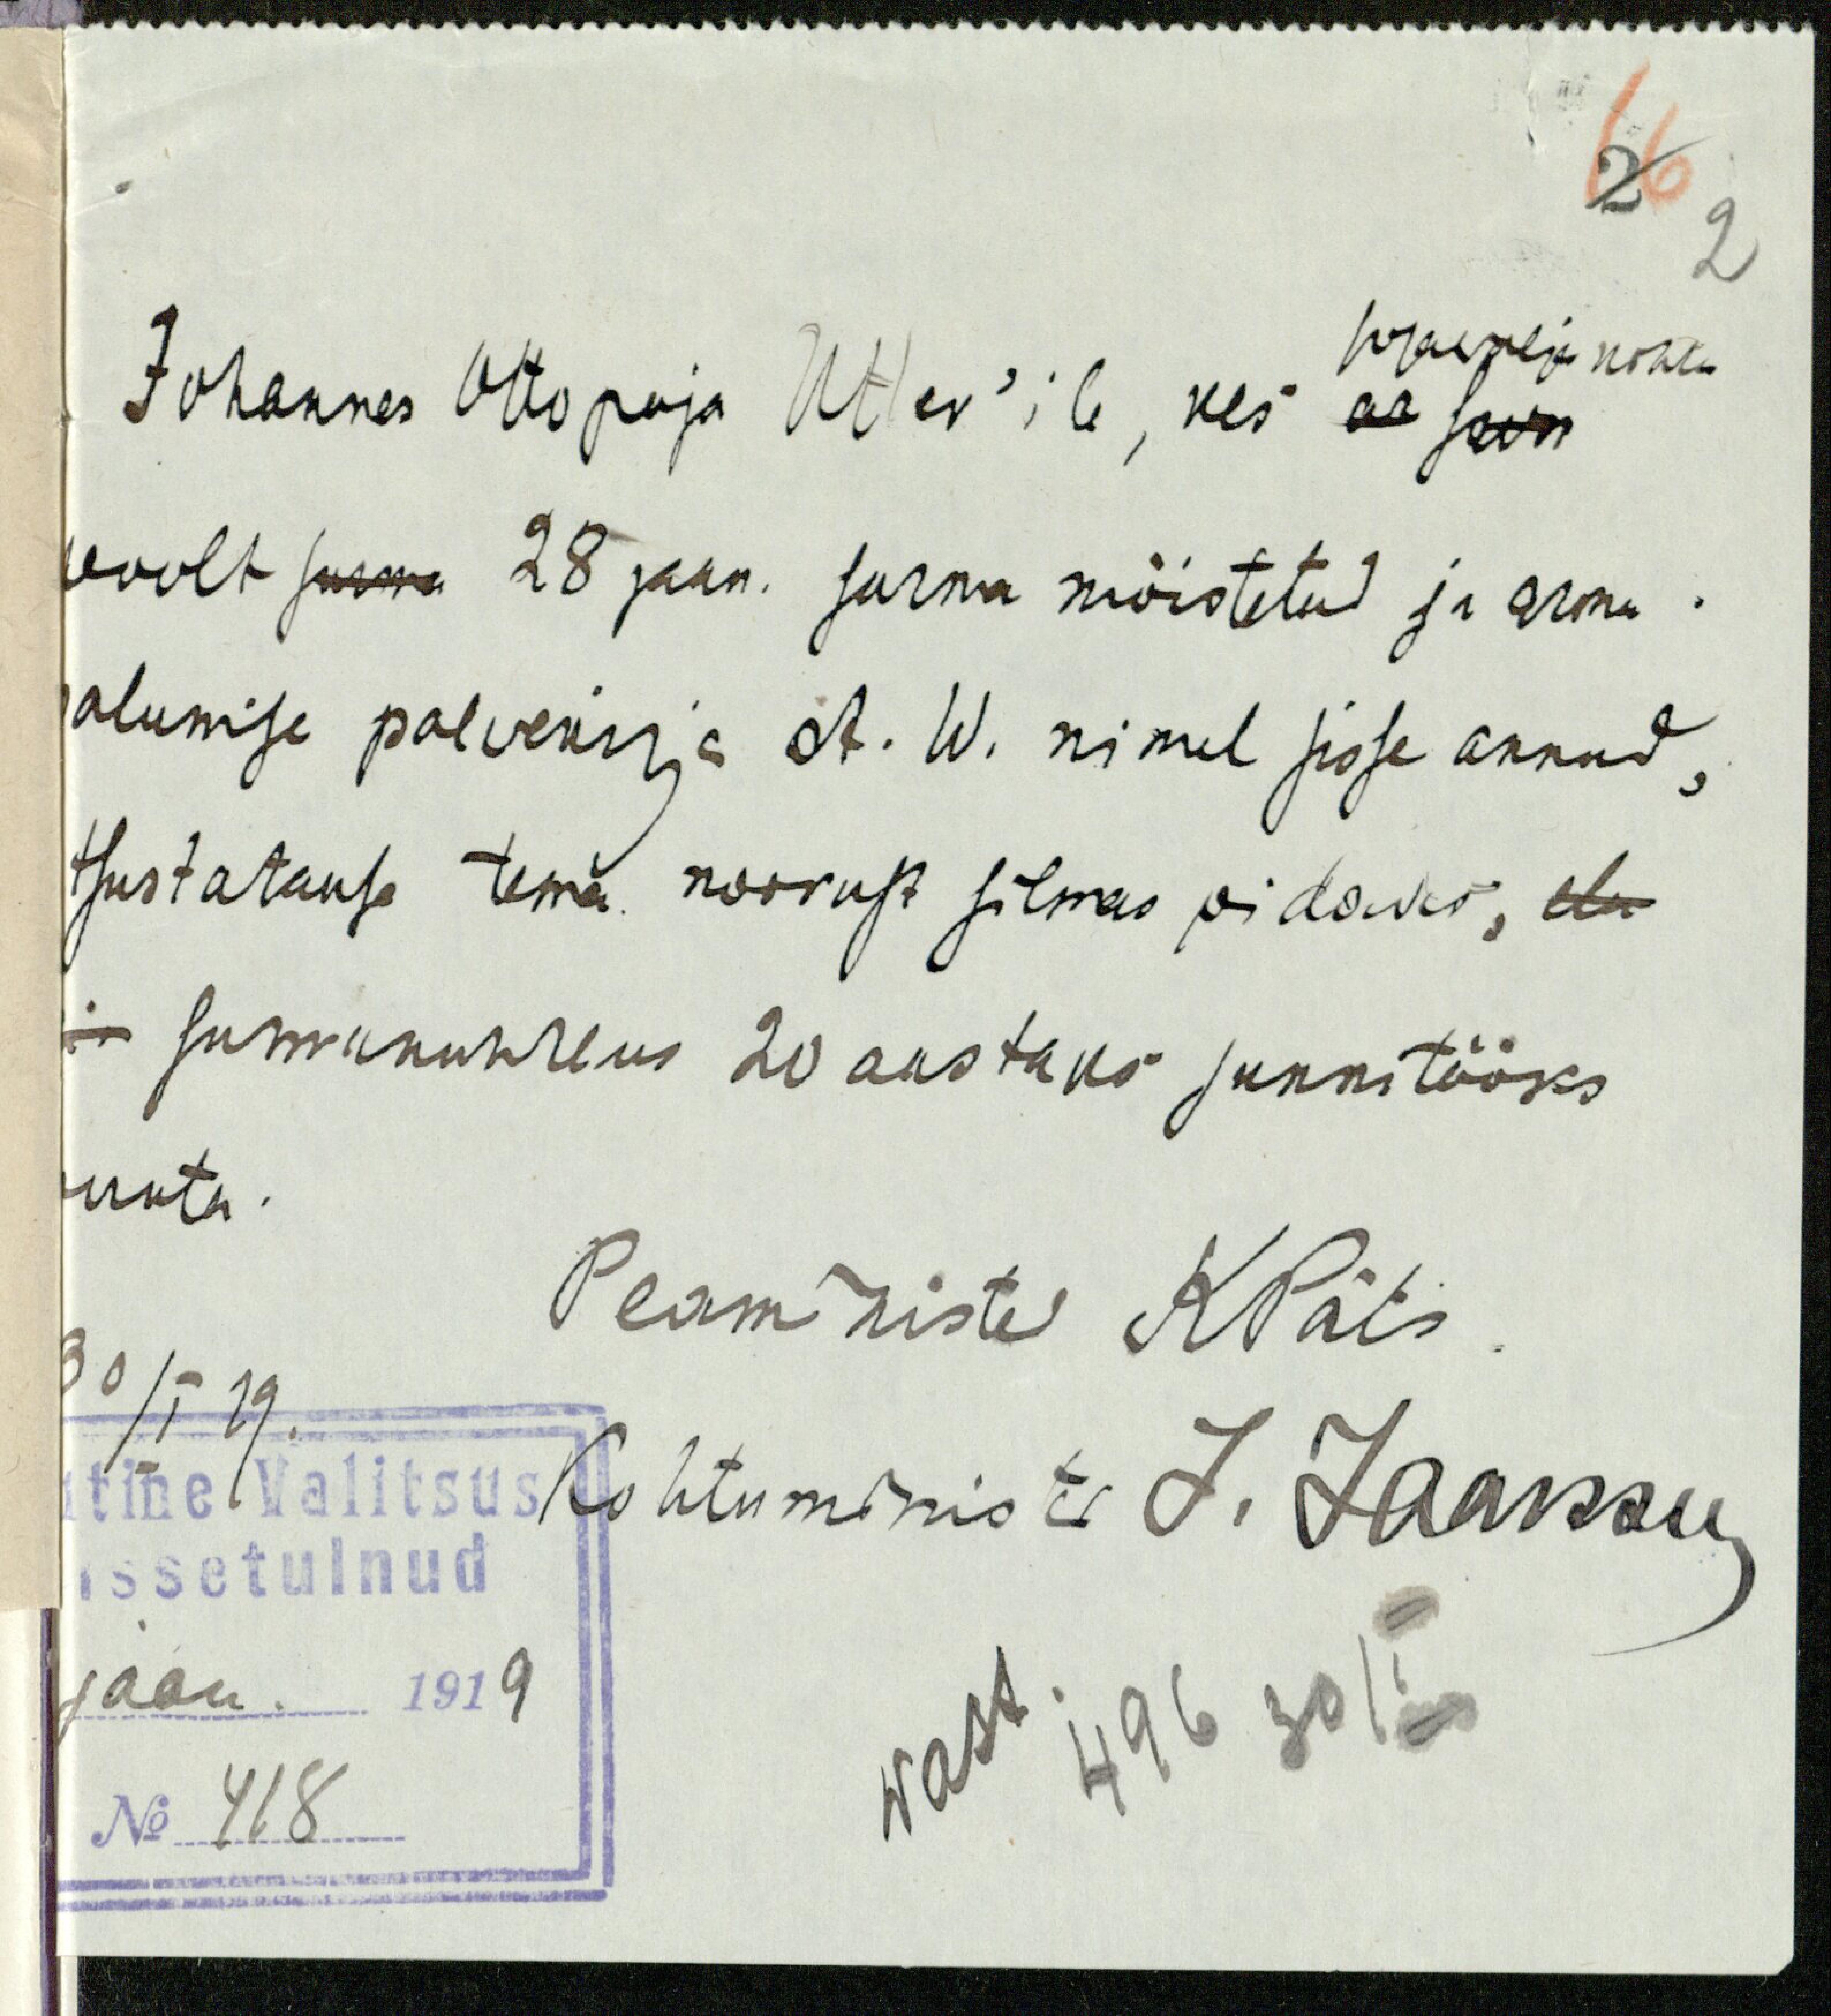 66
2
2
sõjawälja kohtu
Johannes Otto poja Utler'ile, kes
woolt surma 28 jaan. surma mõistetud ja armu
alumise palvekirja A. W. nimel sisse annud,
tsustatakse tema noorust silmas pidades, elu
surmanuhtlus 20 aastaks sunnitööks
uuta.
Peaminister KPäts.
30/I 19.
Kohtuminister J. Jaakson
utine Valitsus
issetulnud
jaan. 1919
№ 418
wast. 496 30/I